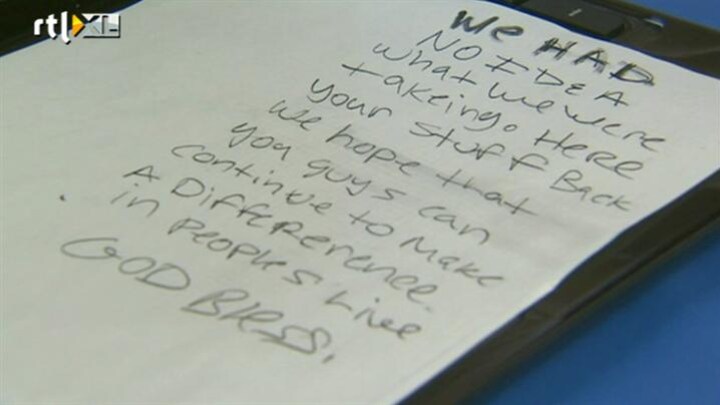 rtl XL
We HAD
NO IDEA
what we were
takeing. Here
your stuff Back
we hope that
you guys can
continue to make
A Difference
in peoples Live
GOD Bless.